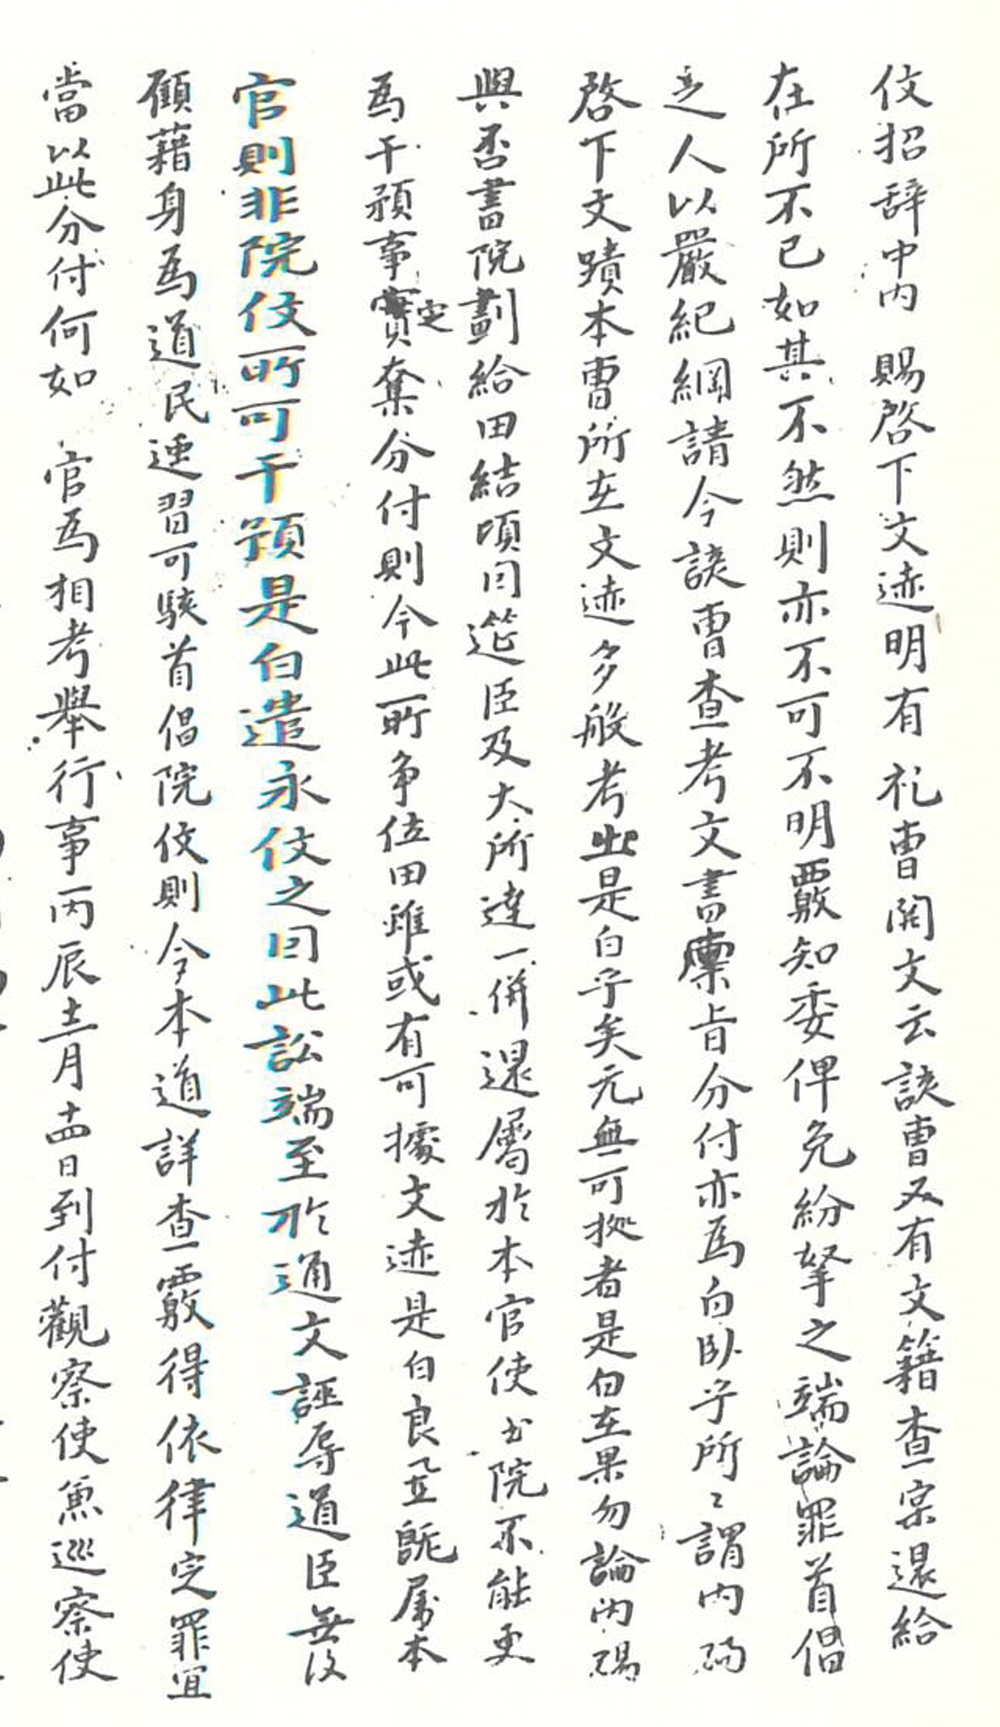 伩招辞中內 賜啓下文迹明有 礼曺関文云該曺又有文籍查実還給
在所不已如其不然則亦不可不明覈知委俾免紛拏之端論罪首倡
之人以嚴紀綱請令該曺查考文書稟旨分付亦為白臥乎所〻謂內賜
啓下文蹟本曺所在文迹多般考出是白乎矣元無可㨿者是白在果勿論內賜
與否書院劃給田結頃因筵臣及大所達一併還屬於本官使書院不能更
為干預事實定奪分付則今此所争位田雖或有可據文迹是白良置旣属本
官則非院伩所可干預是白遣永伩之因此訟端至於通文誣辱道臣無復
顧藉身為道民逕習可駭首倡院伩則令本道詳查覈得依律定罪宜
當以此分付何如 官為相考舉行事丙辰十二月十四日到付觀察使兼巡察使